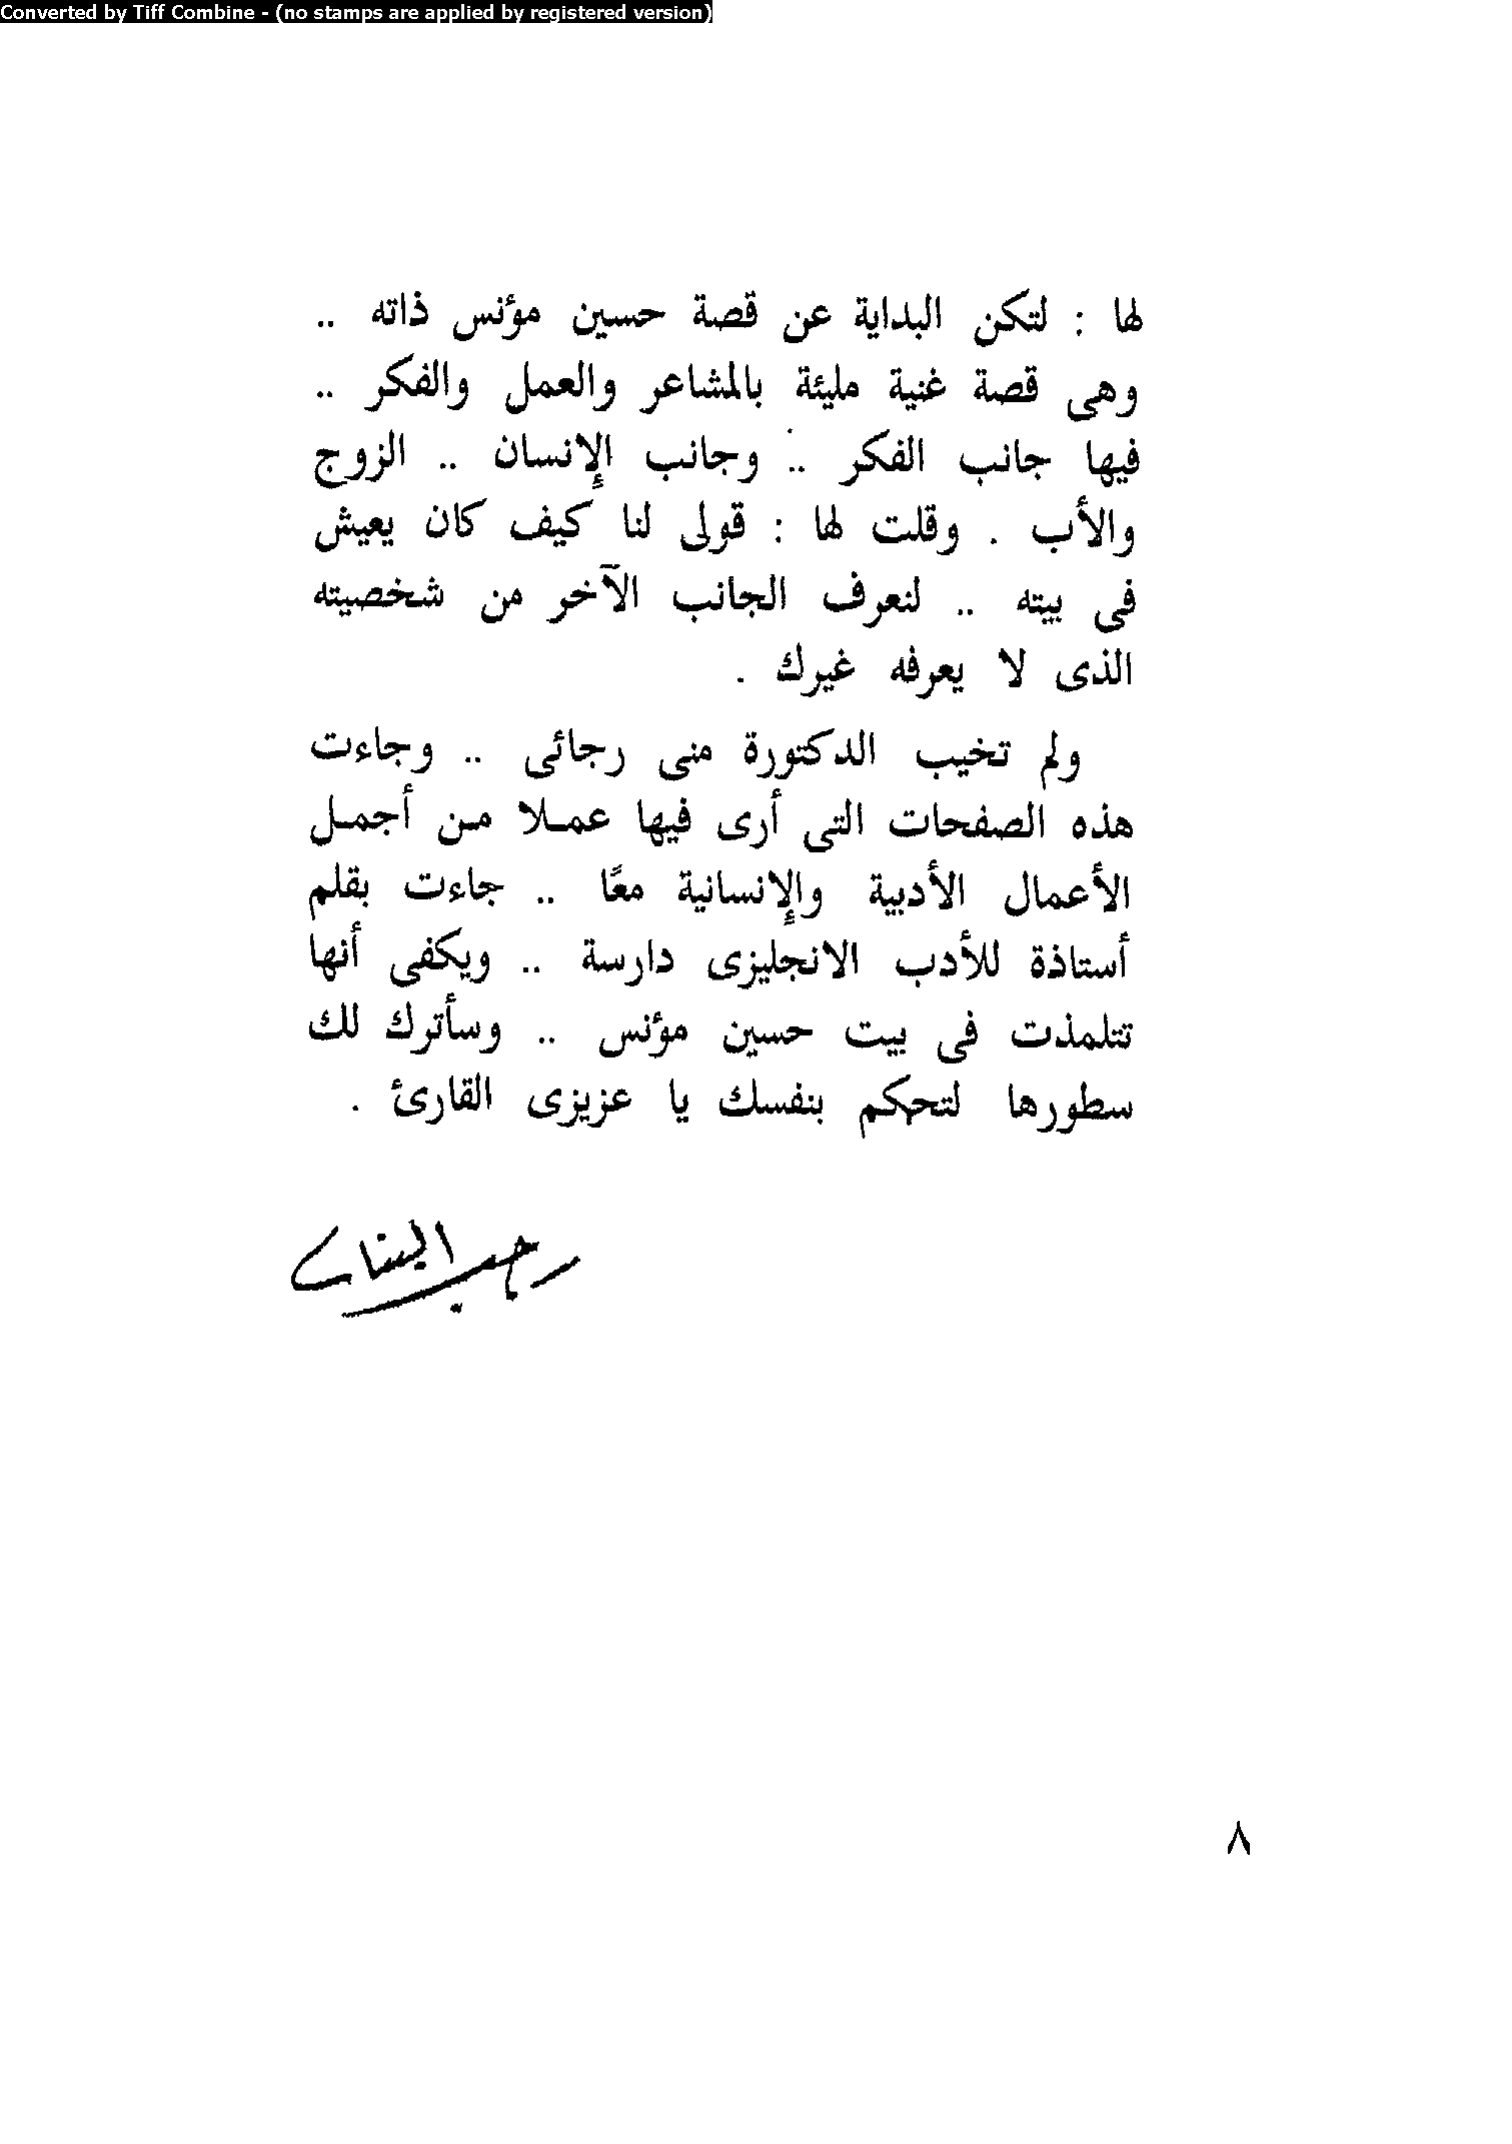 Converted by Tiff Combine - (no stamps are applied by registered version)
لها : لتكن البداية عن قصة حسين مؤنس ذاته ..
وهى قصة غنية مليئة بالمشاعر والعمل والفكر ..
فيها جانب الفكر .. وجانب الإنسان .. الزوج
والأب . وقلت لها : قولى لنا كيف كان يعيش
فى بيته .. لنعرف الجانب الآخر من شخصيته
الذى لا يعرفه غيرك .
ولم تخيب الدكتورة منى رجائى .. وجاءت
هذه الصفحات التى أرى فيها عملا من أجمل
الأعمال الأدبية والإنسانية معًا .. جاءت بقلم
أستاذة للأدب الانجليزى دارسة .. ويكفى أنها
تتلمذت فى بيت حسين مؤنس .. وسأترك لك
سطورها لتحكم بنفسك يا عزيزى القارئ .
رجب البنا
٨